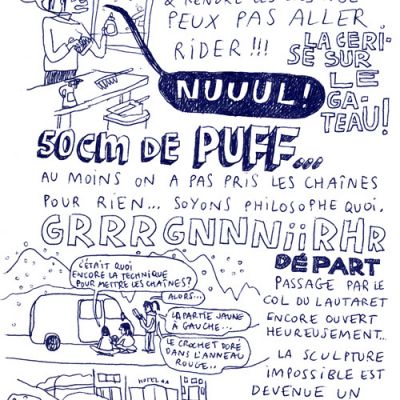 PEUX PAS ALLER
RIDER !!!
NUUUL!
LA CERI-
SE SUR
LE
GA-
TEAU!
50cm DE PUFF...
AU MOINS ON A PAS PRIS LES CHAÎNES
POUR RIEN... SOYONS PHILOSOPHE QUOI.
GRRRGNNNiiRHR
DÉPART
C'ÉTAIT QUOI
ENCORE LA TECHNIQUE
POUR METTRE LES CHAÎNES?
ALORS...
LA PARTIE JAUNE
À GAUCHE...
LE CROCHET DORÉ
DANS L'ANNEAU
ROUGE..
PASSAGE PAR LE
COL DU LAUTARET
ENCORE OUVERT
HEUREUSEMENT...
LA SCULPTURE
IMPOSSIBLE EST
DEVENUE UN
HOTEL